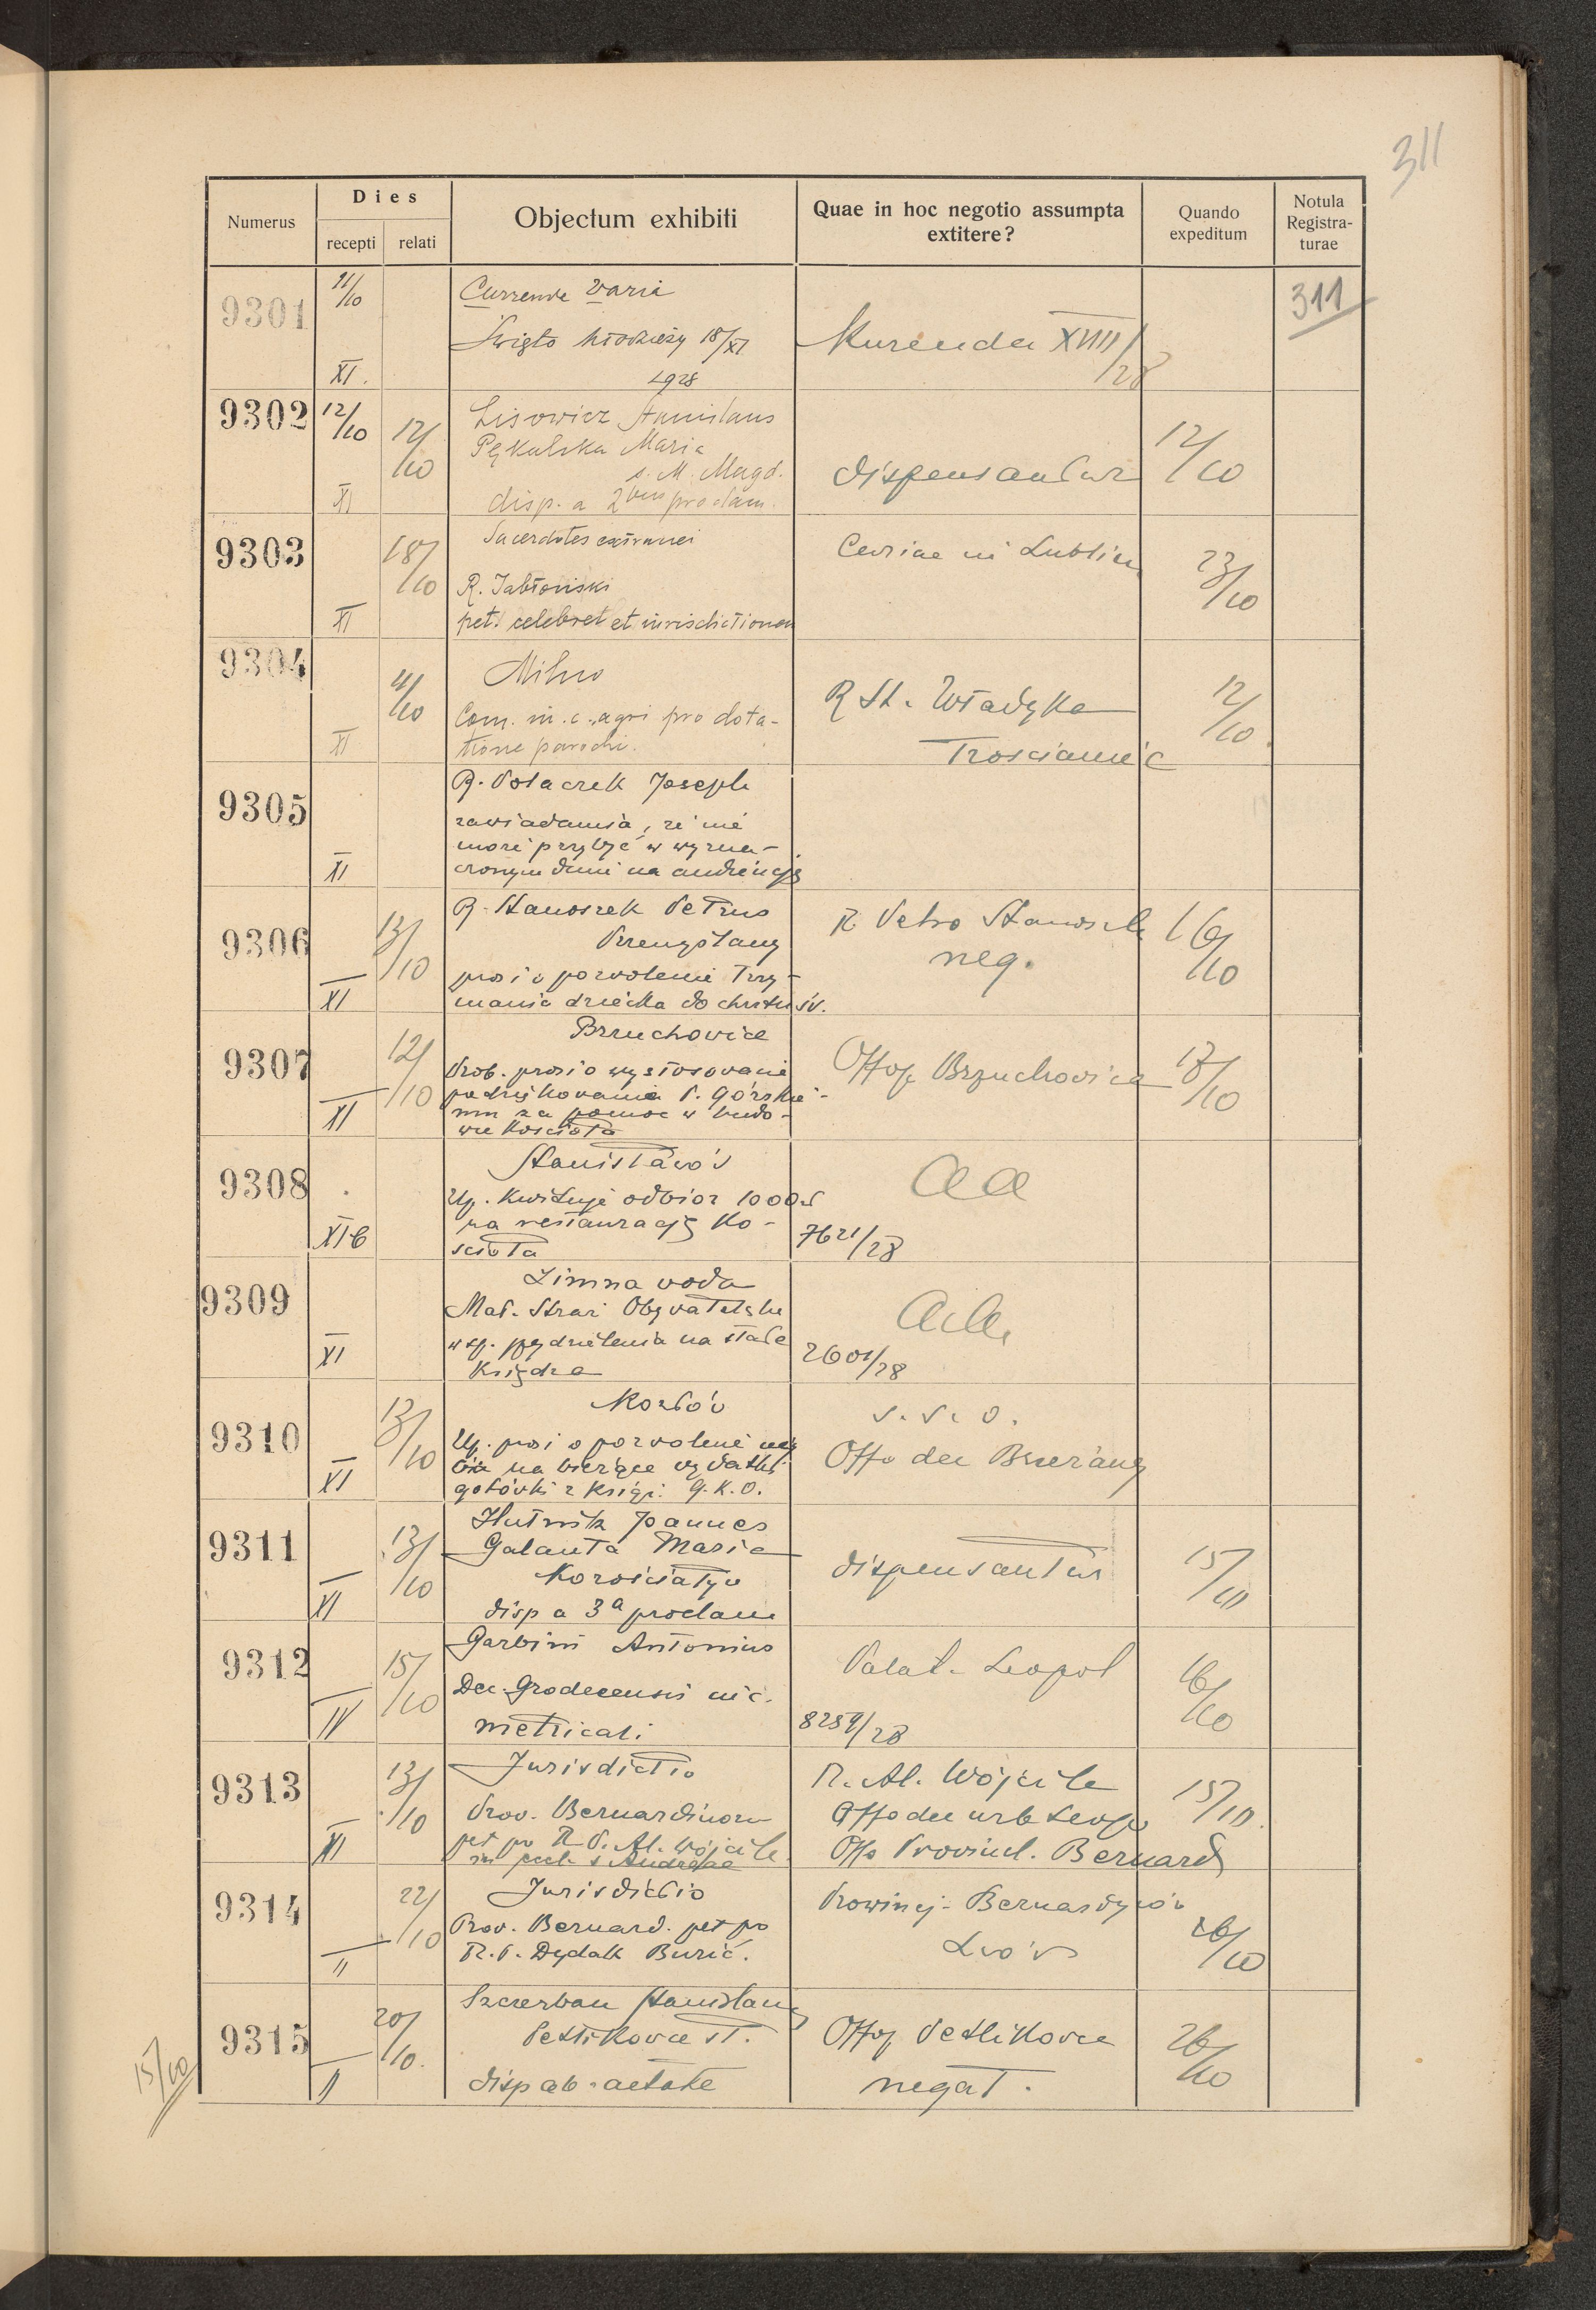 311
Numerus
Dies
recepti
relati
Objectum exhibiti
Quae in hoc negotio assumpta
extitere?
Quando
expeditum
Notula
Registra-
turae
9301
11/10
XI.
Currende varia
Święto młodzieży 18/XI
1928
Kurenda XVIII/28
311
9302
12/10
XI
12/10
Lisowicz Stanislaus
Pękalska Maria
s. M. Magd.
disp. a 2bus proclam.
dispensantur
12/10
9303
XI
18/10
Sacerdotes extranei
R. Jabłoński
pet. celebret et iurisdictionem
Curiae in Lublin
23/10
9304
XI
11/10
Milno
Com. in c. agri pro dota-
tione parochi.
R St. Władyka
Trościaniec
12/10
9305
XI
R. Polaczek Joseph
zawiadamia, że nie
może przybyć w wyzna-
czonym dniu na audiencję
9306
XI
13/10
R. Stanoszek Petrus
Przemyślany
prosi o pozwolenie trzy-
mania dziecka do chrztu św.
R Petro Stanoszek
neg.
16/10
9307
XI
12/10
Brzuchowice
Prob. prosi o wystosowanie
podziękowania P. Górskie-
mu za pomoc w budo-
wie kościoła
Offop Brzuchowice
17/10
9308
XI b
Stanisławów
Up. kwituje odbiór 1000 zł
na restaurację ko-
ścioła
aa
7621/28
9309
XI
Zimna woda
Mał. Straż Obywatelska
w sp. przydzielenia na stałe
księdza
2601/28
9310
XI
13/10
Kozłów
Up. prosi o pozwolenie
na bieżące wydatki
gotówki z książ. G.K.O.
v. s. o.
Offo dec Brzeżany
9311
XI
13/10
Hutnik Joannes
Galanta Maria
Korościatyn
disp a 3a proclam
dispensantur
15/10
9312
IV
15/10
Garbini Antonius
Dec. Grodecensis
metricali
Palat. Leopol
8259/28
16/10
9313
XI
13/10
Jurisdictio
Prov. Bernardinorum
pet pro R. P. Al. Wójcik
in eccl. s Andreae
R. Al. Wójcik
Offo dec urb Leop
Offo Provincl. Bernard
15/10.
9314
II
22/10
Jurisdictio
Prov. Bernard. pet pro
R. P. Dydak Burić.
Prowincj. Bernardynów
Lwów
26/10
15/10
9315
II
20/10.
Szczerban Stanislaus
Petlikowce st.
disp ab aetate
Offop Petlikowce
negat.
26/10